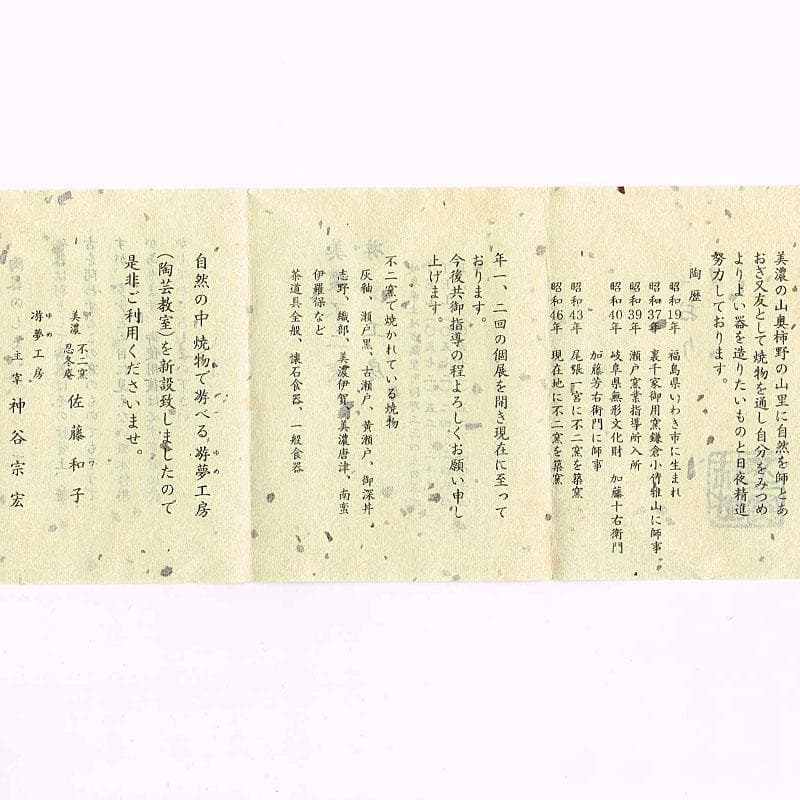 美濃の山奥柿野の山里に自然を師とあ
おぎ又友として焼物を通し自分をみつめ
よりよい器を造りたいものと日夜精進
努力しております。
陶歴
昭和19年 福島県いわき市に生まれ
昭和37年 裏千家御用窯鎌倉小倩雅山に師事
昭和39年 瀬戸窯業指導所入所
昭和40年 岐阜県無形文化財 加藤十右衛門
加藤芳右衛門に師事
昭和43年 尾張一宮に不二窯を築窯
昭和46年 現在地に不二窯を築窯
年一、二回の個展を開き現在に至って
おります。
今後共御指導の程よろしくお願い申し
上げます。
不二窯で焼かれている焼物
灰釉、瀬戸黒、古瀬戸、黄瀬戸、御深井
志野、織部、美濃伊賀、美濃唐津、南蛮
伊羅保など
茶道具全般、懐石食器、一般食器
自然の中焼物で遊べる遊夢工房
ゆめ
(陶芸教室)を新設致しましたので
是非ご利用くださいませ。
美濃 不二窯
忍冬庵
佐藤和子
ゆめ
遊夢工房
主宰 神谷宗宏